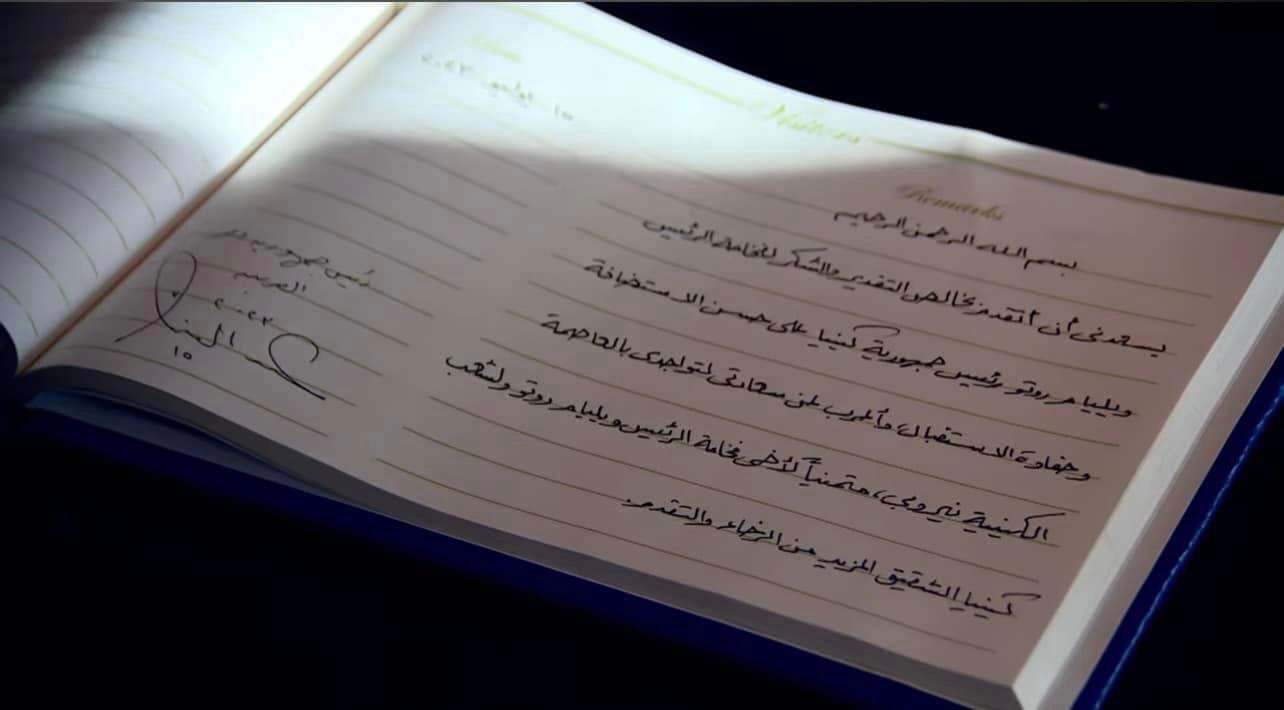 Remarks
١٥ يوليو ٢٠٢٣
بسم الله الرحمن الرحيم
يسعدنى أن أتقدم بخالص التقدير والشكر لفخامة الرئيس
ويليام روتو رئيس جمهورية كينيا على حسن الاستضافة
وحفاوة الاستقبال، وأعرب عن سعادتى لتواجدى بالعاصمة
الكينية نيروبى، متمنياً لأخى فخامة الرئيس ويليام روتو ولشعب
كينيا الشقيق المزيد من الرخاء والتقدم.
رئيس جمهورية مصر
العربية
١٥